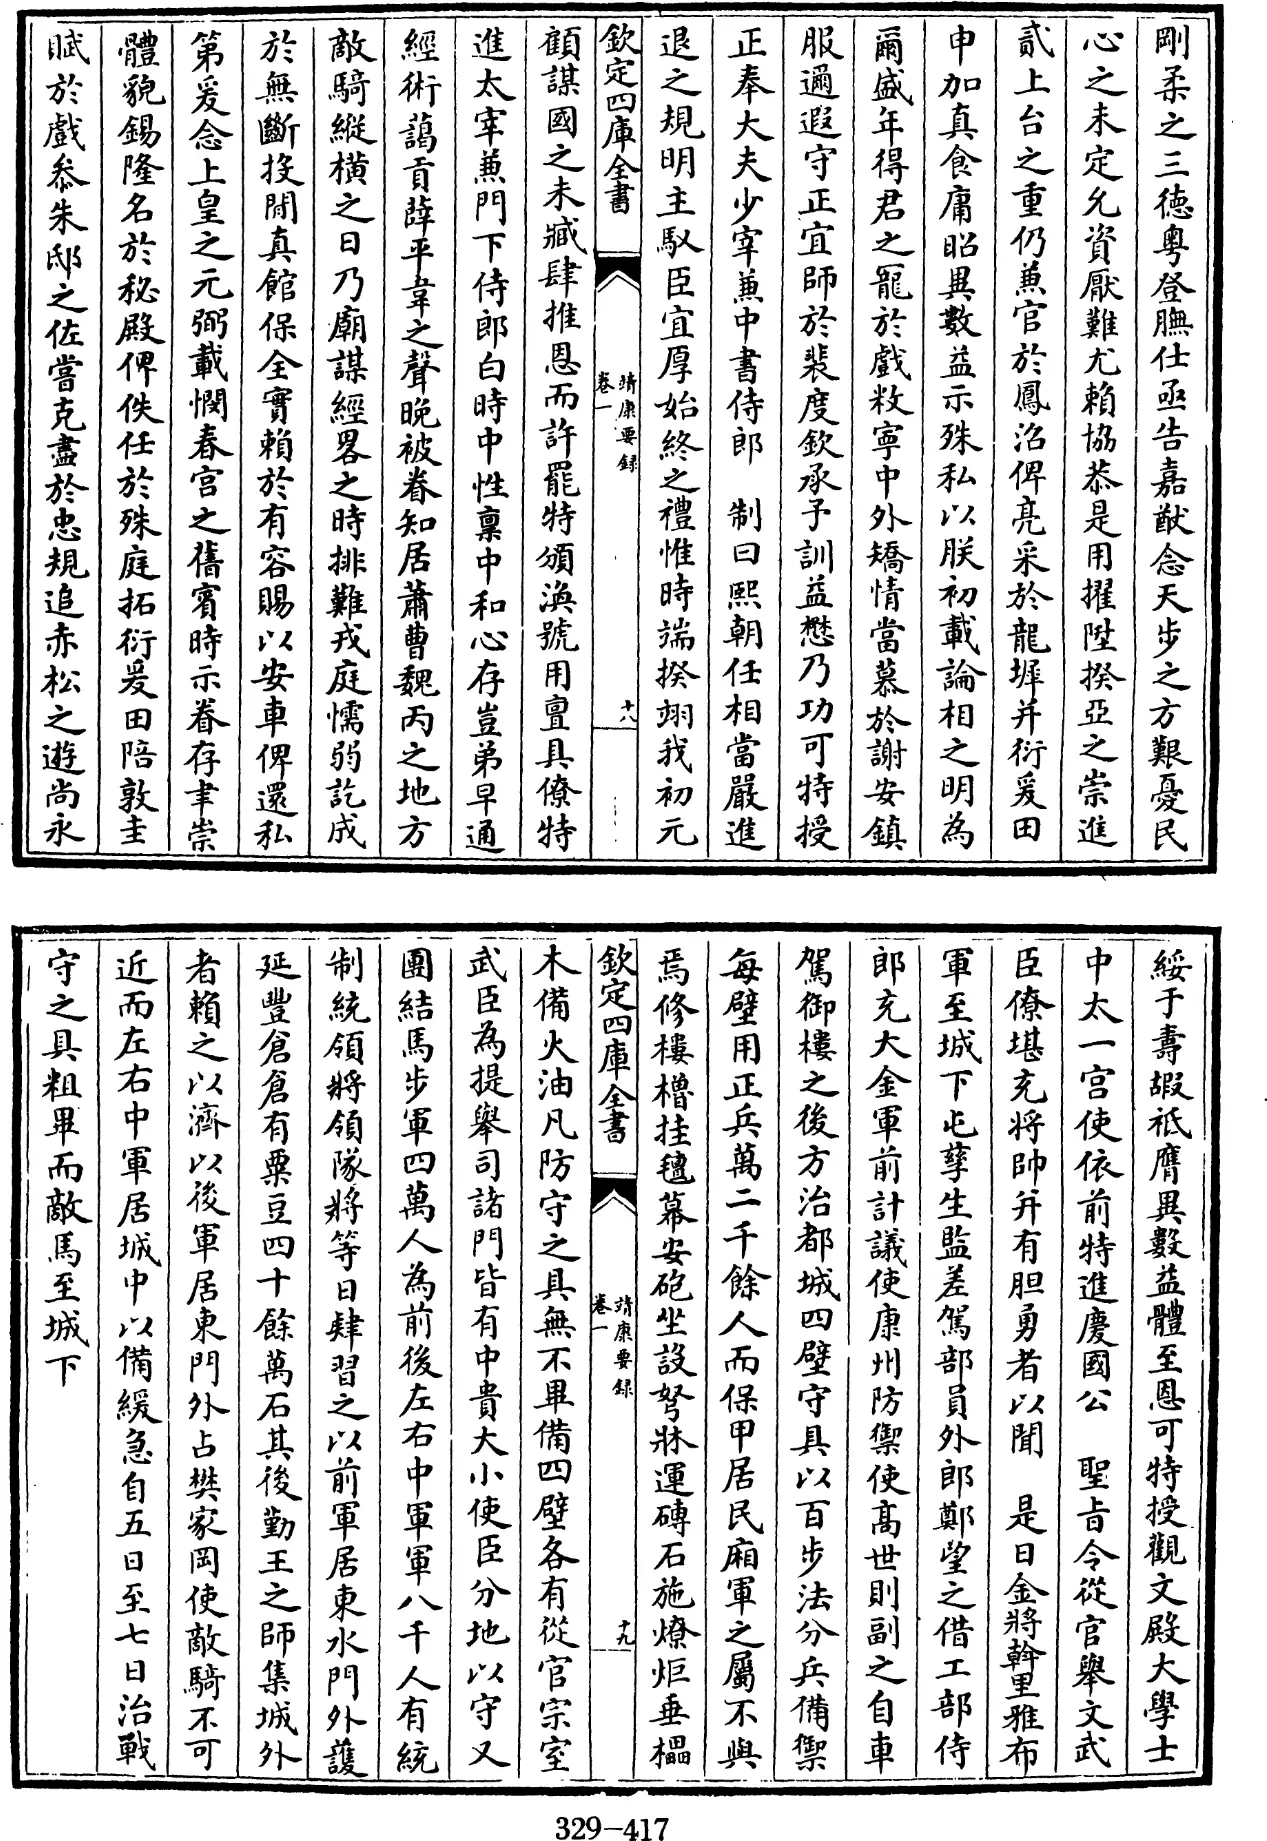 剛柔之三德粤登膴仕亟告嘉猷念天步之方艱憂民
心之未定允資厭難尤賴協恭是用擢陞揆亞之崇進
貳上台之重仍兼官於鳳沼俾亮采於龍墀并衍爰田
申加真食庸昭異數益示殊私以朕初載論相之明為
爾盛年得君之寵於戲敉寧中外矯情當慕於謝安鎮
服邇遐守正宜師於裴度欽承予訓益懋乃功可特授
正奉大夫少宰兼中書侍郎　制曰熙朝任相當嚴進
退之規明主馭臣宜厚始終之禮惟時端揆翊我初元
欽定四庫全書
靖康要録
卷一
十八
顧謀國之未臧肆推恩而許罷特頒渙號用亶具僚特
進太宰兼門下侍郎白時中性稟中和心存豈弟早通
經術藹貢薛平韋之聲晚被眷知居蕭曹魏丙之地方
敵騎縱横之日乃廟謀經畧之時排難戎庭懦弱訖成
於無斷投閒真館保全實賴於有容賜以安車俾還私
第爰念上皇之元弼載憫春宫之舊賓時示眷存聿崇
體貌錫隆名於秘殿俾佚任於殊庭拓衍爰田陪敦圭
賦於戲叅朱邸之佐嘗克盡於忠規追赤松之遊尚永
綏于壽嘏祇膺異數益體至恩可特授觀文殿大學士
中太一宫使依前特進慶國公　聖旨令從官舉文武
臣僚堪充將帥并有胆勇者以聞　是日金將斡里雅布
軍至城下屯孳生監差駕部員外郎鄭望之借工部侍
郎充大金軍前計議使康州防禦使高世則副之自車
駕御樓之後方治都城四壁守具以百步法分兵備禦
每壁用正兵萬二千餘人而保甲居民廂軍之屬不與
焉修樓櫓挂氊幕安砲坐設弩牀運磚石施燎炬垂櫑
欽定四庫全書
靖康要録
卷一
十九
木備火油凡防守之具無不畢備四壁各有從官宗室
武臣為提舉司諸門皆有中貴大小使臣分地以守又
團結馬步軍四萬人為前後左右中軍軍八千人有統
制統領將領隊將等日肄習之以前軍居東水門外護
延豐倉倉有粟豆四十餘萬石其後勤王之師集城外
者賴之以濟以後軍居東門外占樊家岡使敵騎不可
近而左右中軍居城中以備緩急自五日至七日治戰
守之具粗畢而敵馬至城下
329-417